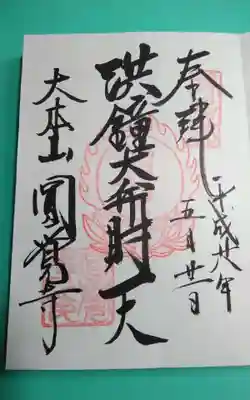 奉拝
平成廿八年
五月廿二日
洪鐘大弁財天
大本山 圓覺寺